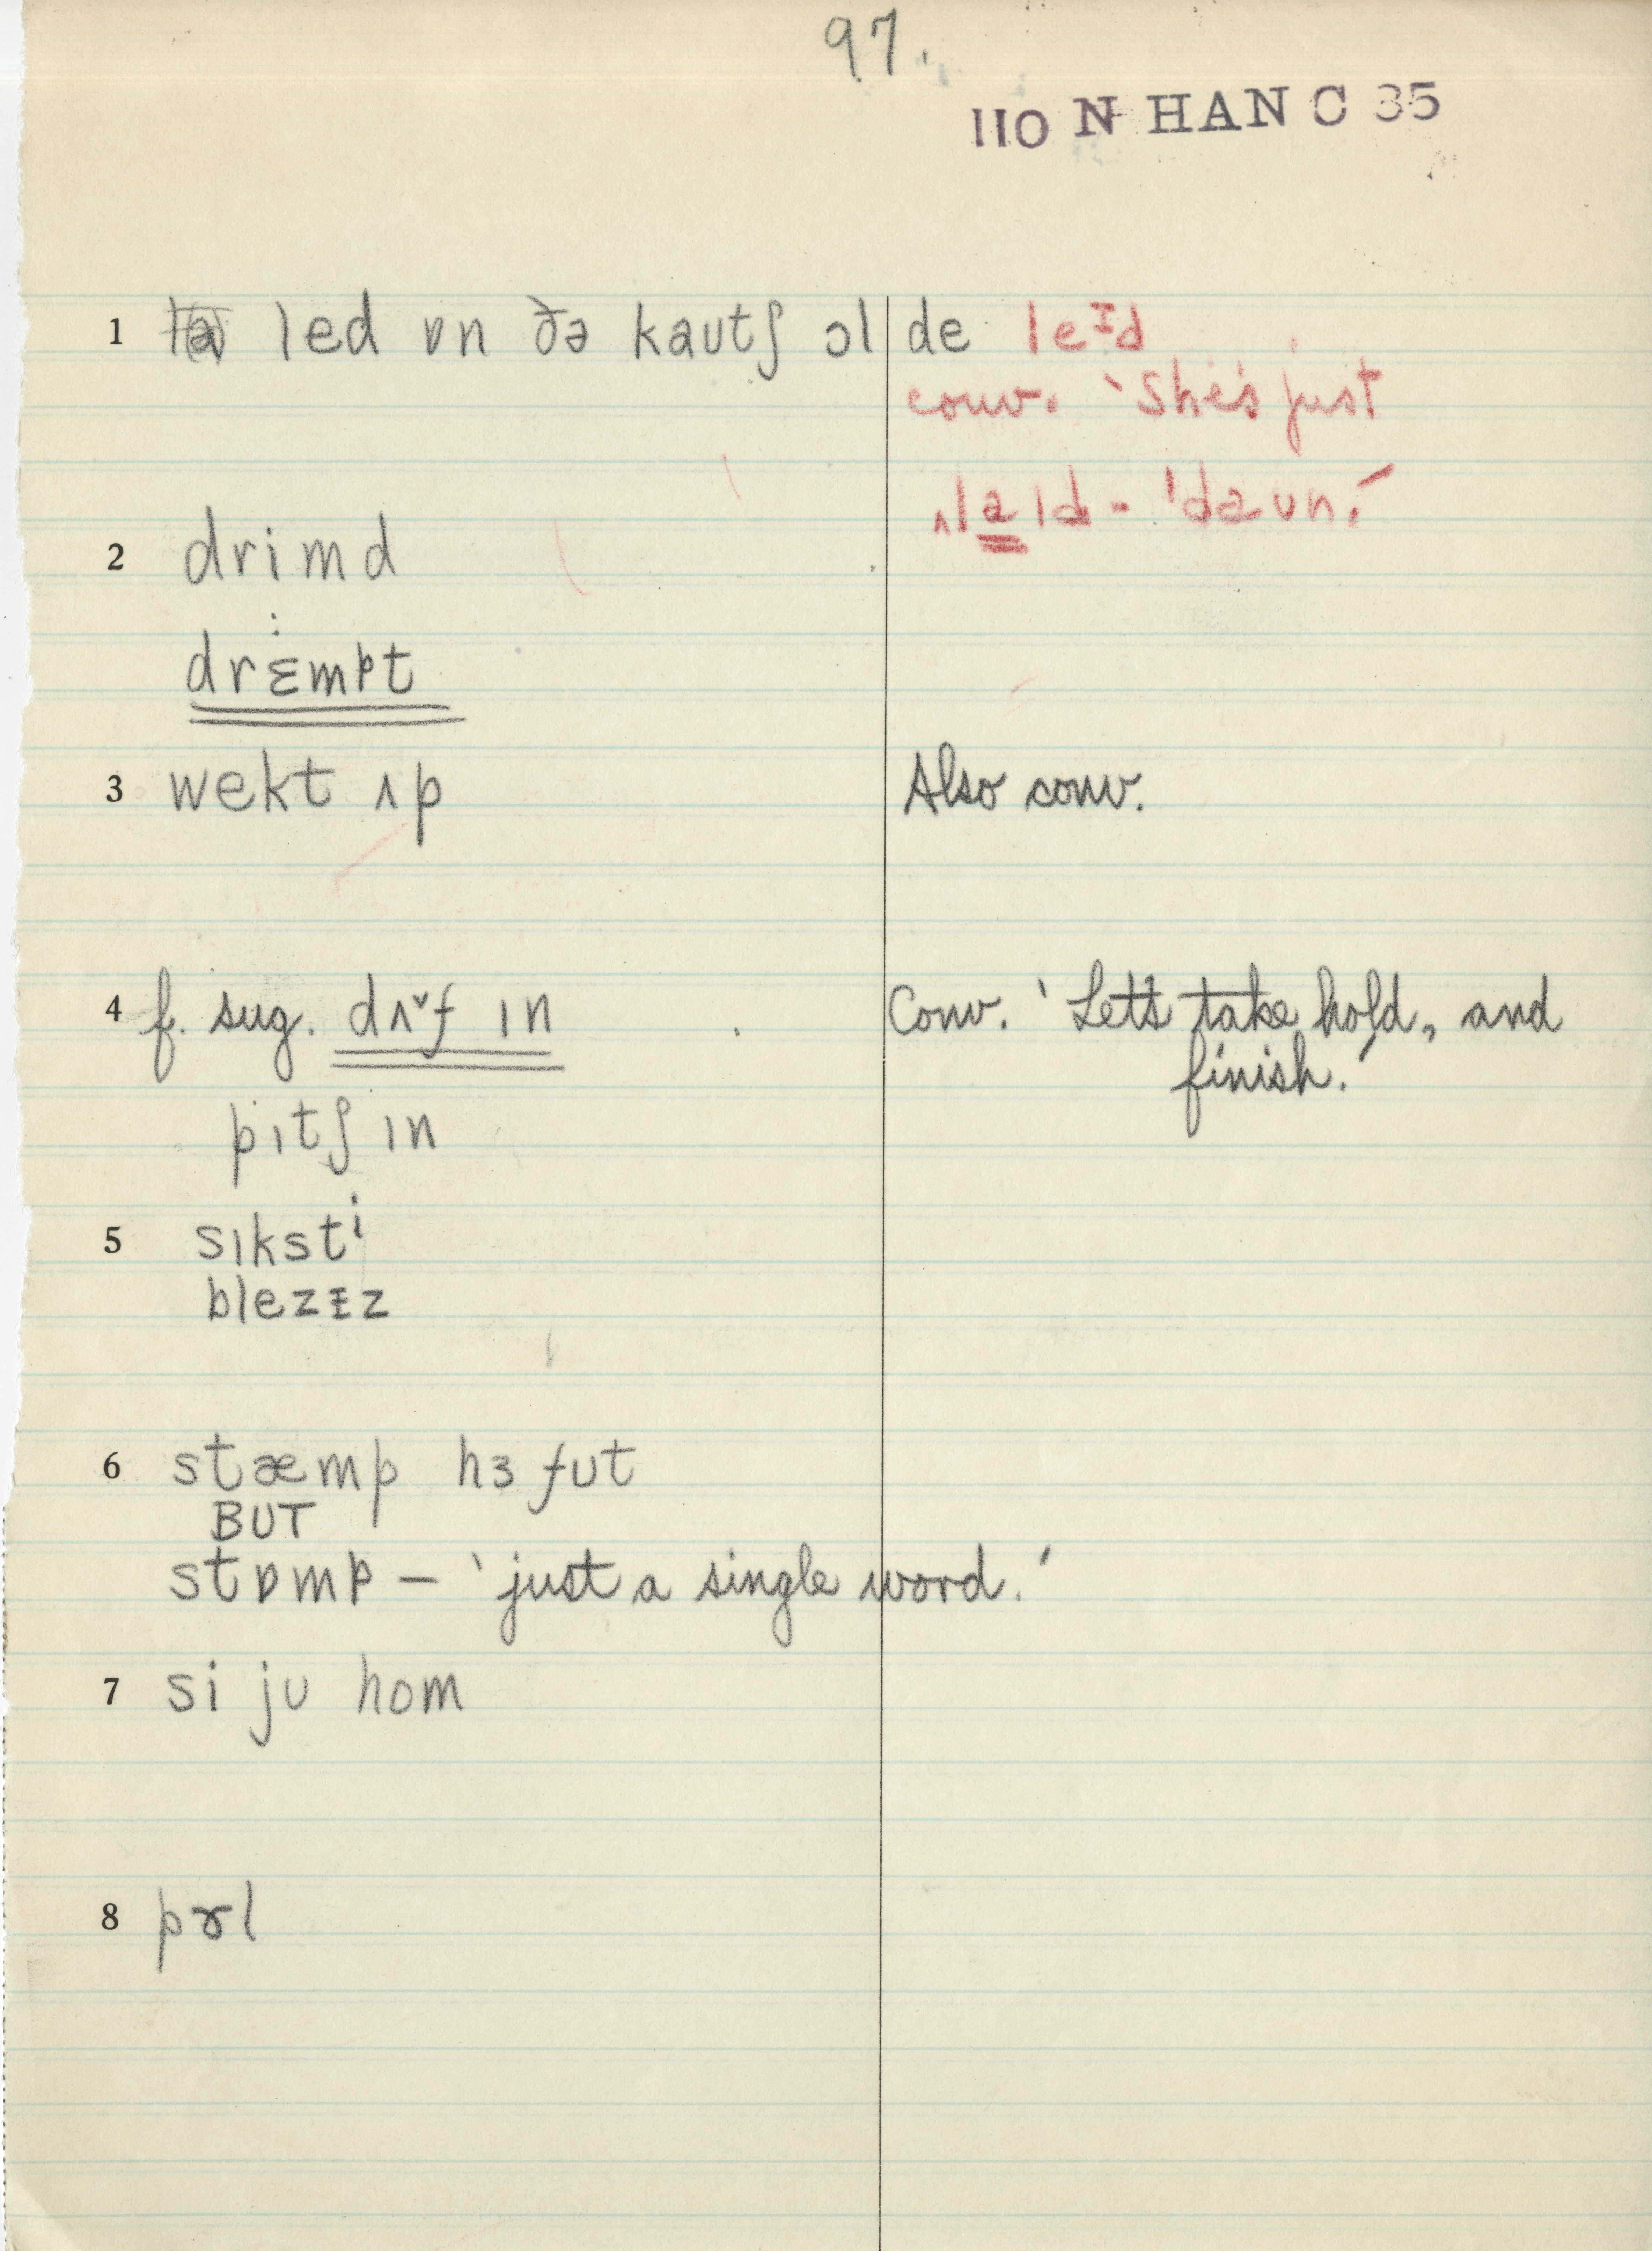 97.
110 N HAN C 35
1 led ɒn ðə kaʊtʃ ɔl de leɪd
conv. 'She's just
ˌlaɪd - ˈdaʊn.'
2 drimd
drɛmpt
3 wekt ʌp Also conv.
4 f. sug. dʌˇf ɪn Conv. 'Let's take hold, and
finish.'
pɪtʃ ɪn
5 sɪksti
blezɪz
6 stæmp hɜ fʊt
BUT
stɒmp – 'just a single word.'
7 si jʊ hom
8 pɤl